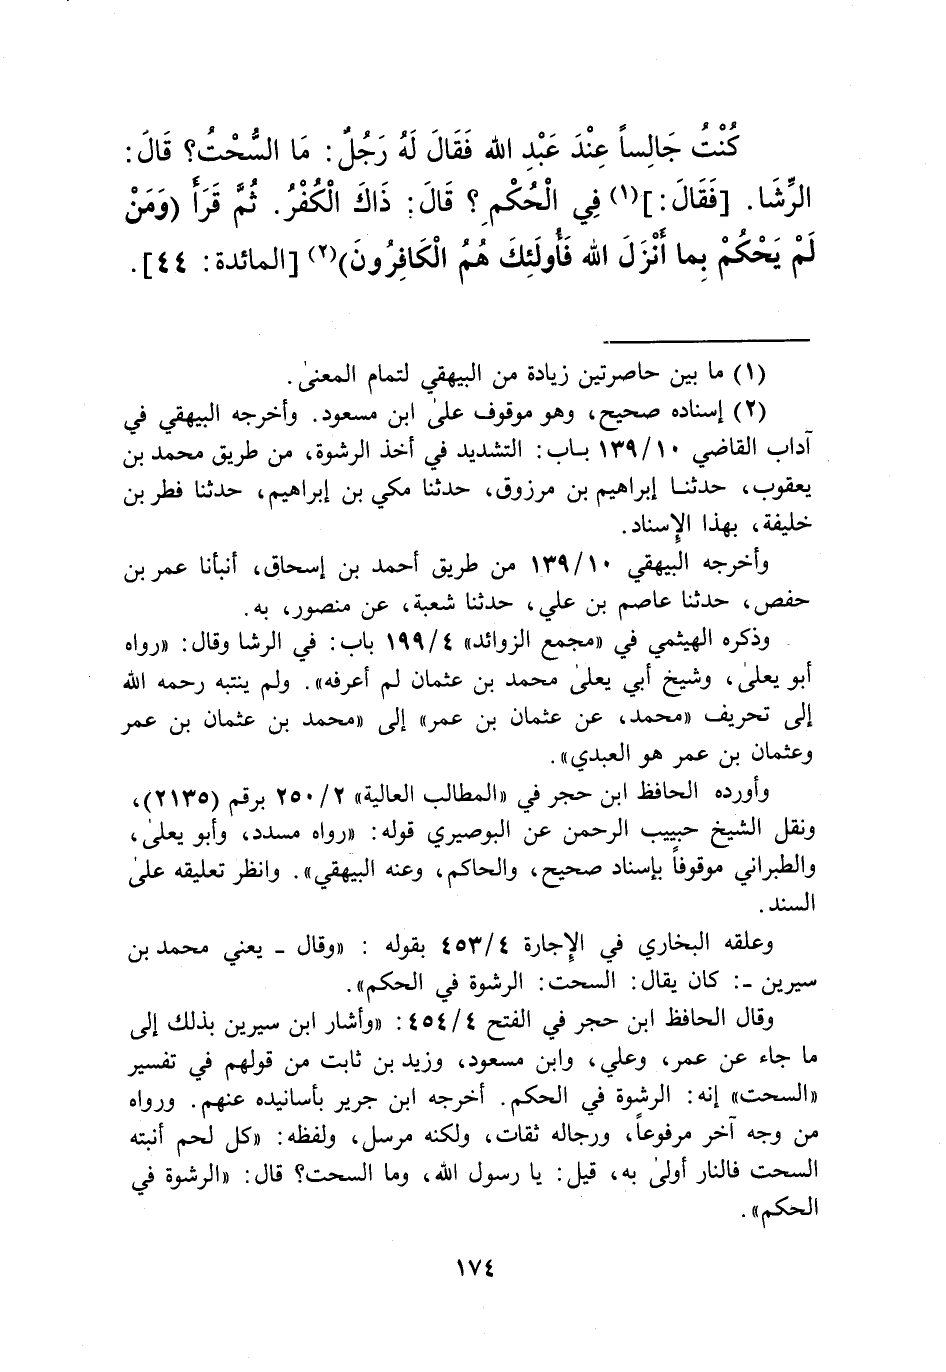 كُنْتُ جَالِساً عِنْدَ عَبْدِ الله فَقَالَ لَهُ رَجُلٌ: مَا السُّحْتُ؟ قَالَ:
الرِّشَا. [فَقَالَ:](١) فِي الْحُكْمِ؟ قَالَ: ذَاكَ الْكُفْرُ. ثُمَّ قَرَأَ (وَمَنْ
لَمْ يَحْكُمْ بِما أَنْزَلَ الله فَأُولَئِكَ هُمُ الْكَافِرُونَ)(٢) [المائدة: ٤٤].
(١) ما بين حاصرتين زيادة من البيهقي لتمام المعنىٰ.
(٢) إسناده صحيح، وهو موقوف علىٰ ابن مسعود. وأخرجه البيهقي في
آداب القاضي ١٣٩/١٠ باب: التشديد في أخذ الرشوة، من طريق محمد بن
يعقوب، حدثنا إبراهيم بن مرزوق، حدثنا مكي بن إبراهيم، حدثنا فطر بن
خليفة، بهذا الإسناد.
وأخرجه البيهقي ١٣٩/١٠ من طريق أحمد بن إسحاق، أنبأنا عمر بن
حفص، حدثنا عاصم بن علي، حدثنا شعبة، عن منصور، به.
وذكره الهيثمي في «مجمع الزوائد» ١٩٩/٤ باب: في الرشا وقال: «رواه
أبو يعلىٰ، وشيخ أبي يعلىٰ محمد بن عثمان لم أعرفه». ولم ينتبه رحمه الله
إلى تحريف «محمد، عن عثمان بن عمر» إلى «محمد بن عثمان بن عمر
وعثمان بن عمر هو العبدي».
وأورده الحافظ ابن حجر في «المطالب العالية» ٢٥٠/٢ برقم (٢١٣٥)،
ونقل الشيخ حبيب الرحمن عن البوصيري قوله: «رواه مسدد، وأبو يعلىٰ،
والطبراني موقوفاً بإسناد صحيح، والحاكم، وعنه البيهقي». وانظر تعليقه علىٰ
السند.
وعلقه البخاري في الإجارة ٤٥٣/٤ بقوله : «وقال ـ يعني محمد بن
سيرين ـ: كان يقال: السحت: الرشوة في الحكم».
وقال الحافظ ابن حجر في الفتح ٤٥٤/٤: «وأشار ابن سيرين بذلك إلى
ما جاء عن عمر، وعلي، وابن مسعود، وزيد بن ثابت من قولهم في تفسير
«السحت» إنه: الرشوة في الحكم. أخرجه ابن جرير بأسانيده عنهم. ورواه
من وجه آخر مرفوعاً، ورجاله ثقات، ولكنه مرسل، ولفظه: «كل لحم أنبته
السحت فالنار أولىٰ به، قيل: يا رسول الله، وما السحت؟ قال: «الرشوة في
الحكم».
١٧٤